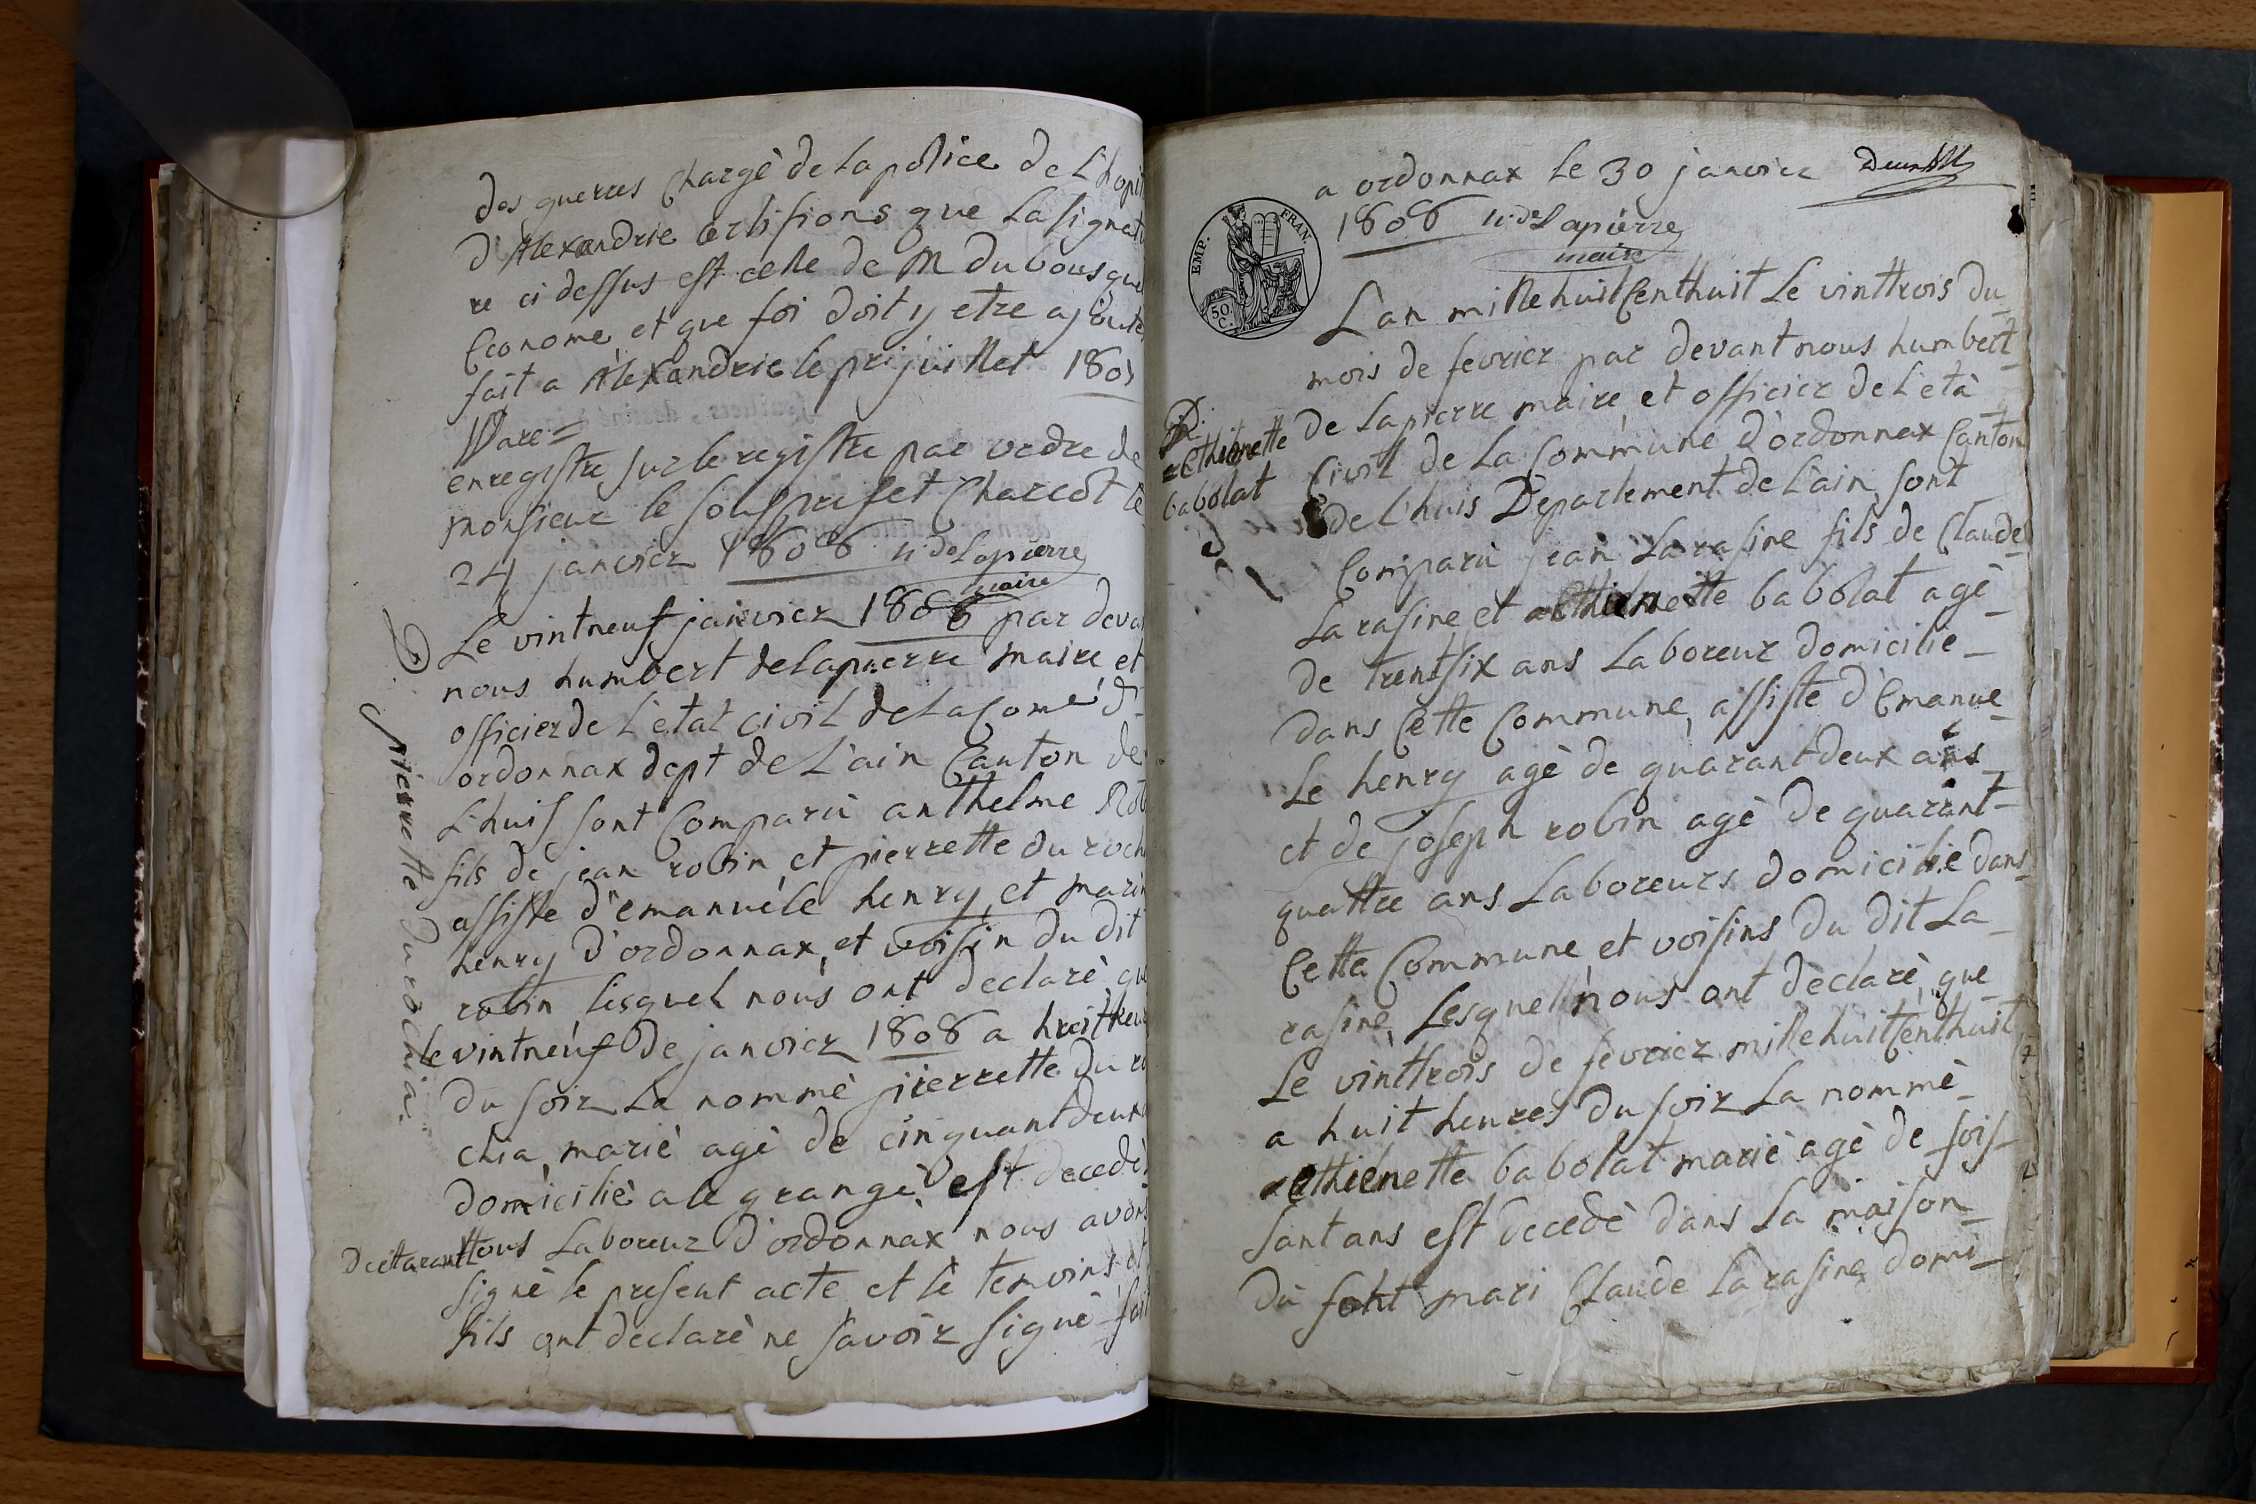 des guerres Chargè de la police de L'hopi
d'Alexandrie certifions que La signatu
re ci dessus est celle de M du bousque
Econome et que foi doit y etre ajoute
fait a Alexandrie le pr juillet 1807
Ware=
enregistre sur le registre par ordre de
monsieur le sousprefet Charcot le
24 janvier 1808 h. de Lapierre
maire
D.
pierrette durochia.
Le vintneuf janvier 1808 par deva
nous humbert delapierre maire, et
officier de L'etat civil de La Come d'
ordonnax dept de L'ain Canton de
L'huis sont Comparù anthelme Rob
fils de jean robin et pierrette du roch
assiste d'emanuéle henry, et marin
henry d'ordonnax, et voisin du dit
robin lesquel nous ont declarè que
le vintneuf de janvier 1808 a huitheu
du soir La nommè pierrette du ro
chia, mariè agè de cinquantdeux
domiciliè a le grange est decedè
Decttarant tous Laboreur d'ordonnax nous avons
signè le present acte et lè temoins et
fils ont declarè ne savoir signè fait
a ordonnax le 30 janvier
1808 h. de Lapierre
maire
EMP. FRAN.
50. C.
D.
ethienette
babolat
L'an mille huit Cent huit Le vinttrois du
mois de fevrier par devant nous humbert
de Lapierre maire, et officier de L'età
Civil de La Commune d'ordonnax Canton
de L'huis Departement de L'ain, sont
Comparù jean Larasine fils de Claude
Larasine et ethienette babolat agè
de trentsix ans Laboreur domicilie
dans Cette Commune, assiste d'Emanue
Le henry agè de quarantdeux ans
et de joseph robin agè de quarant
quattre ans Laboreurs domicilie dans
Cette Commune, et voisins du dit La
rasine, Lesquell nous ont dèclarè, que
Le vinttrois de fevrier mille huitCenthuit
a huit heures du soir La nommè
ethienette babolat mariè agè de sois
sant ans est decedè dans La maison
du font mari Claude Larasine domi